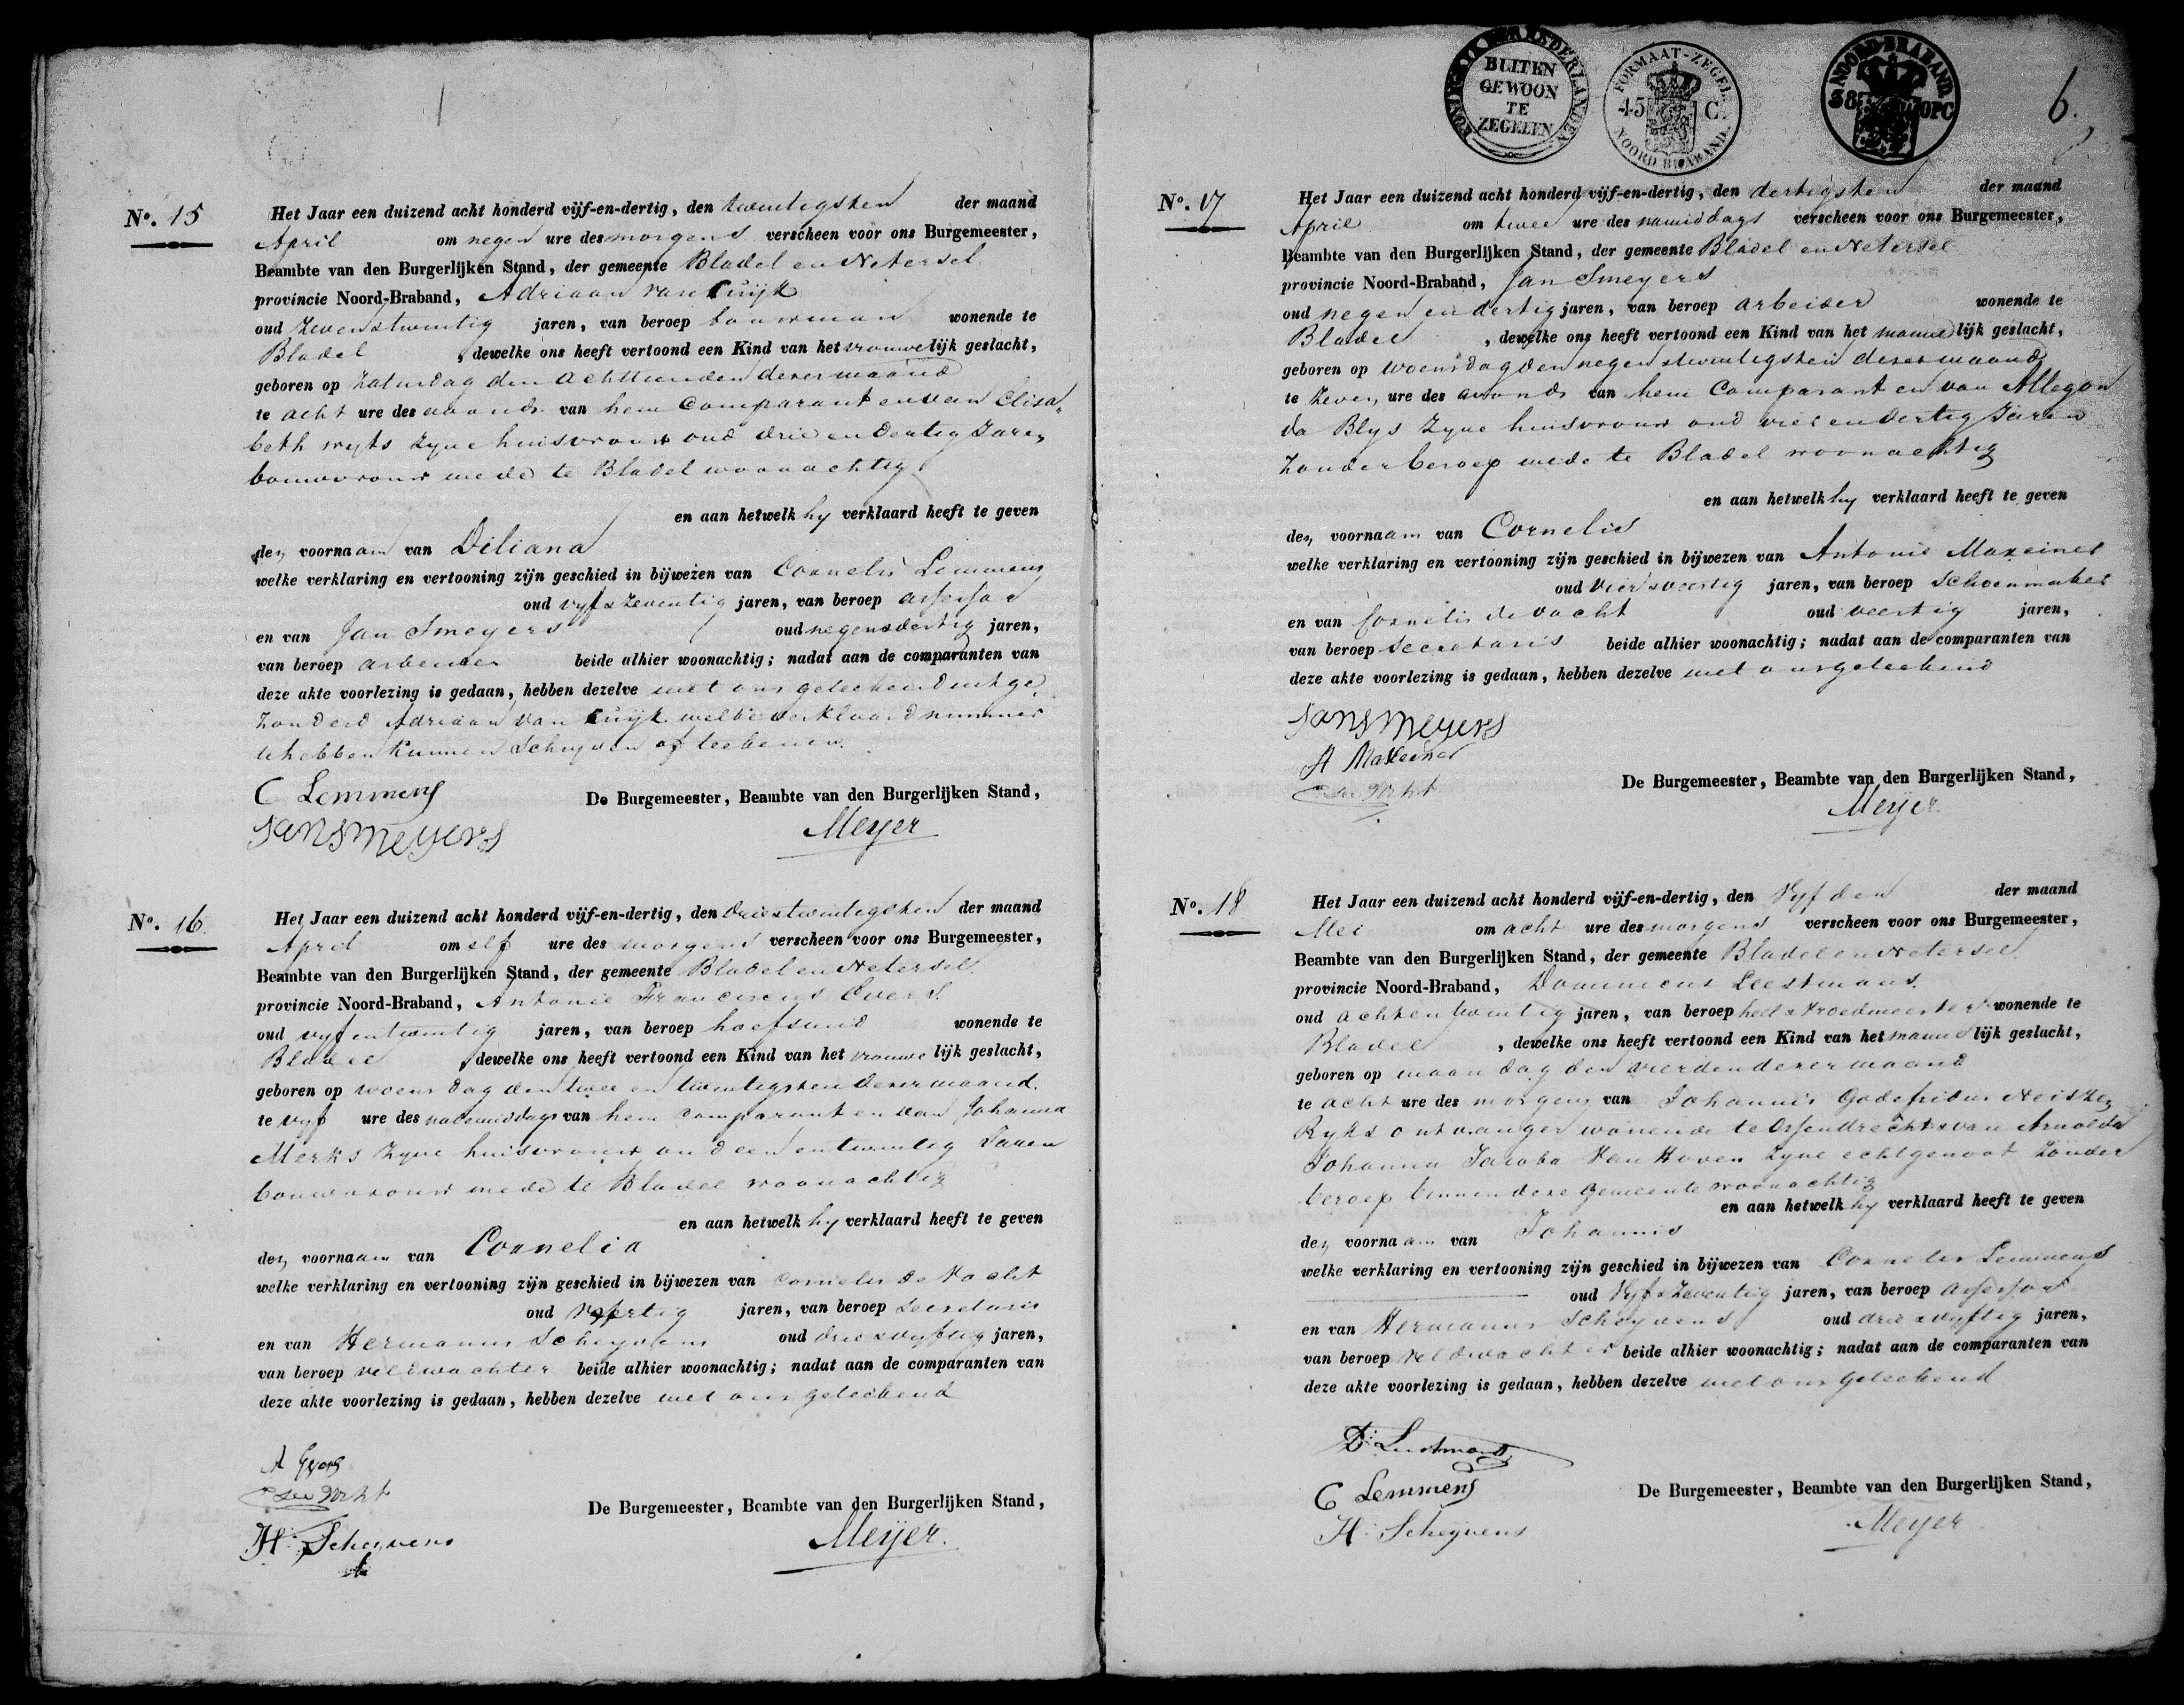 N°. 15
Het Jaar een duizend acht honderd vijf-en-dertig, den twintigsten der maand
April om negen ure des morgens verscheen voor ons Burgemeester,
Beambte van den Burgerlijken Stand, der gemeente Bladel en Netersel
provincie Noord-Braband, Adriaan van Cuijk
oud zevenstwintig jaren, van beroep bouwman wonende te
Bladel , dewelke ons heeft vertoond een Kind van het vrouwelijk geslacht,
geboren op Zaturdag den achttienden dezer maand
te acht ure des avonds van hem Comparant en van Elisa„
beth wyts zyne huisvrouw oud drie en dertig Jaren
bouwvrouw mede te Bladel woonachtig
en aan hetwelk hy verklaard heeft te geven
den voornaam van Diliana
welke verklaring en vertooning zijn geschied in bijwezen van Cornelis Lemmens
oud vyf & zeventig jaren, van beroep assessor
en van Jan Smeyers oud negen&dertig jaren,
van beroep arbeider beide alhier woonachtig; nadat aan de comparanten van
deze akte voorlezing is gedaan, hebben dezelve met ons geteekend uitge
zonderd Adriaan van Cuijk welke verklaard nimmer
te hebben kunnen schryven of teekenen.
C Lemmens
De Burgemeester, Beambte van den Burgerlijken Stand,
JanSmeyers
Meyer
N°. 16.
Het Jaar een duizend acht honderd vijf-en-dertig, den driestwintigsten der maand
April om elf ure des morgens verscheen voor ons Burgemeester,
Beambte van den Burgerlijken Stand, der gemeente Bladel en Netersel
provincie Noord-Braband, Antonie Franciscus Evers
oud vyfentwintig jaren, van beroep hoefsmid wonende te
Bladel , dewelke ons heeft vertoond een Kind van het vrouwelijk geslacht,
geboren op woensdag den twee en twintigsten dezer maand.
te vyf ure des nademiddags van hem comparant en van Johanna
Merks zyne huisvrouw oud een entwintig Jaren
bouwvrouw mede te Bladel woonachtig
en aan hetwelk hy verklaard heeft te geven
den voornaam van Cornelia
welke verklaring en vertooning zijn geschied in bijwezen van Cornelis de Vocht
oud veertig jaren, van beroep Secretaris
en van Hermanus Scheyvens oud drie & vyftig jaren,
van beroep veldwachter beide alhier woonachtig; nadat aan de comparanten van
deze akte voorlezing is gedaan, hebben dezelve met ons geteekend
A Evers
C de Vocht
De Burgemeester, Beambte van den Burgerlijken Stand,
H: Scheyvens
Meijer.
KONINGRYK DER NEDERLANDEN
BUITEN
GEWOON
TE
ZEGELEN
FORMAAT-ZEGEL.
45 C.
NOORD BRABAND.
NOORD-BRABAND
38 OPC
6.
N°. 17
Het Jaar een duizend acht honderd vijf-en-dertig, den dertigsten der maand
April om twee ure des namiddags verscheen voor ons Burgemeester,
Beambte van den Burgerlijken Stand, der gemeente Bladel en Netersel
provincie Noord-Braband, Jan Smeyers
oud negen en dertig jaren, van beroep arbeider wonende te
Bladel , dewelke ons heeft vertoond een Kind van het mannelijk geslacht,
geboren op woensdag den negenstwintigsten dezer maand
te zeven ure des avonds van hem Comparant en van Allegon
da Blys zyne huisvrouw oud vier en dertig Jaren
zonder beroep mede te Bladel woonachtig
en aan hetwelk hy verklaard heeft te geven
den voornaam van Cornelis
welke verklaring en vertooning zijn geschied in bijwezen van Antonie Maxeiner
oud viersveertig jaren, van beroep Schoenmaker
en van Cornelis de Vocht oud veertig jaren,
van beroep Secretaris beide alhier woonachtig; nadat aan de comparanten van
deze akte voorlezing is gedaan, hebben dezelve met ons geteekend
JanSmeyers
A Maxeiner
C de Vocht
De Burgemeester, Beambte van den Burgerlijken Stand,
Meijer.
N°. 18
Het Jaar een duizend acht honderd vijf-en-dertig, den Vyfden der maand
Mei om acht ure des morgens verscheen voor ons Burgemeester,
Beambte van den Burgerlijken Stand, der gemeente Bladel en Netersel
provincie Noord-Braband, Dominicus Leestmans
oud achtentwintig jaren, van beroep heel & vroedmeester wonende te
Bladel , dewelke ons heeft vertoond een Kind van het mannelijk geslacht,
geboren op maandag den vierden dezer maand
te acht ure des morgens van Johannis Godefridus
Ryks ontvanger wonende te Ossendrecht & van Arnolda
Johanna Jacoba Van Hoven zyne echtgenoot zonder
beroep binnen deze gemeente woonachtig
en aan hetwelk hy verklaard heeft te geven
den voornaam van Johannis
welke verklaring en vertooning zijn geschied in bijwezen van Cornelis Lemmens
oud Vyf & zeventig jaren, van beroep assessor
en van Hermanus Scheyvens oud drie & vyftig jaren,
van beroep veldwachter beide alhier woonachtig; nadat aan de comparanten van
deze akte voorlezing is gedaan, hebben dezelve met ons geteekend
D: Leestmans
C Lemmens
De Burgemeester, Beambte van den Burgerlijken Stand,
H: Scheyvens
Meyer